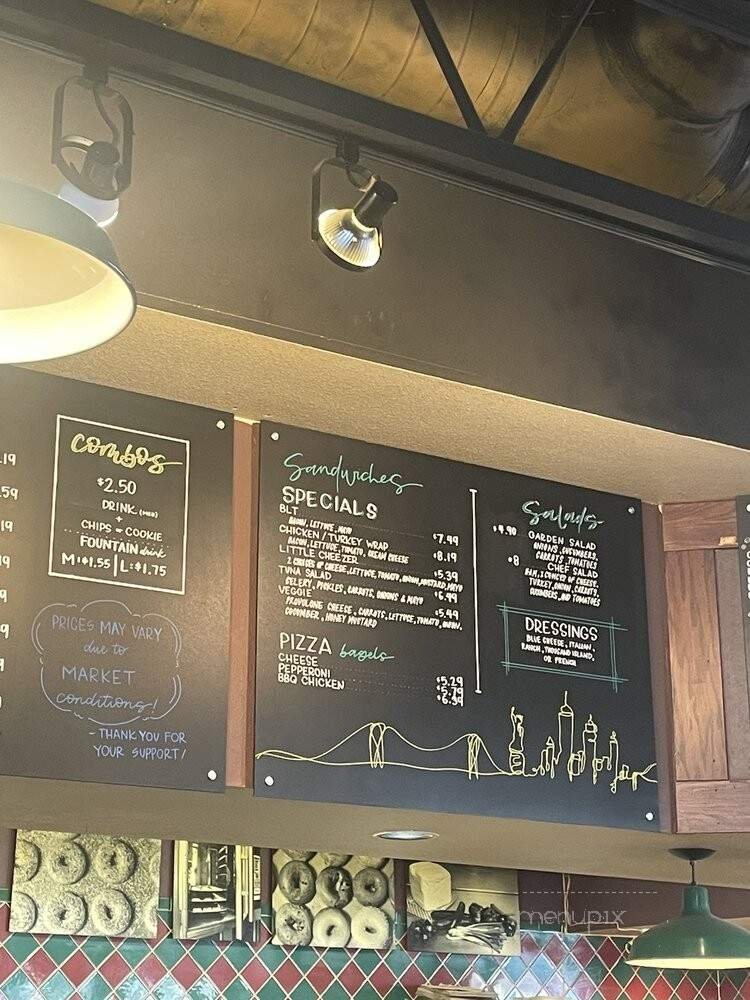 .19
.59
19
9
9
combos
$2.50
DRINK (MED)
+
CHIPS or COOKIE
FOUNTAIN drink
M:$1.55 | L:$1.75
PRICES MAY VARY
due to
MARKET
conditions!
- THANK YOU FOR
YOUR SUPPORT!
Sandwiches
SPECIALS
BLT $7.99
BACON, LETTUCE, MAYO
CHICKEN / TURKEY WRAP $8.19
BACON, LETTUCE, TOMATO, CREAM CHEESE
LITTLE CHEEZER $5.39
2 CHEESES OF CHEESE, LETTUCE, TOMATO, ONION, MUSTARD, MAYO
TUNA SALAD $6.99
CELERY, PICKLES, CARROTS, ONIONS & MAYO
VEGGIE $5.49
PROVOLONE CHEESE, CARROTS, LETTUCE, TOMATO, ONION,
CUCUMBER, HONEY MUSTARD
PIZZA bagels
CHEESE $5.29
PEPPERONI $5.79
BBQ CHICKEN $6.39
Salads
$4.90 GARDEN SALAD
ONIONS, CUCUMBERS,
CARROTS, TOMATOES
$8 CHEF SALAD
HAM, 2 OUNCES OF CHEESE,
TURKEY, ONION, CARROTS,
CUCUMBERS, AND TOMATOES
DRESSINGS
BLUE CHEESE, ITALIAN,
RANCH, THOUSAND ISLAND,
OR FRENCH
menupix